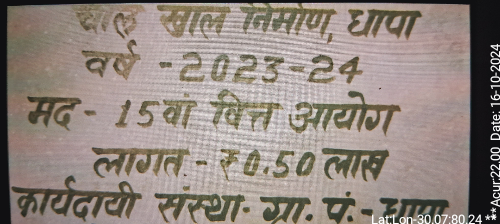 चाल खाल निर्माण, धापा
वर्ष - 2023-24
मद - 15वां वित्त आयोग
लागत - ₹0.50 लाख
कार्यदायी संस्था- ग्रा. पं. - धापा
LatLon-30.07:80.24
Date:16-10-2024